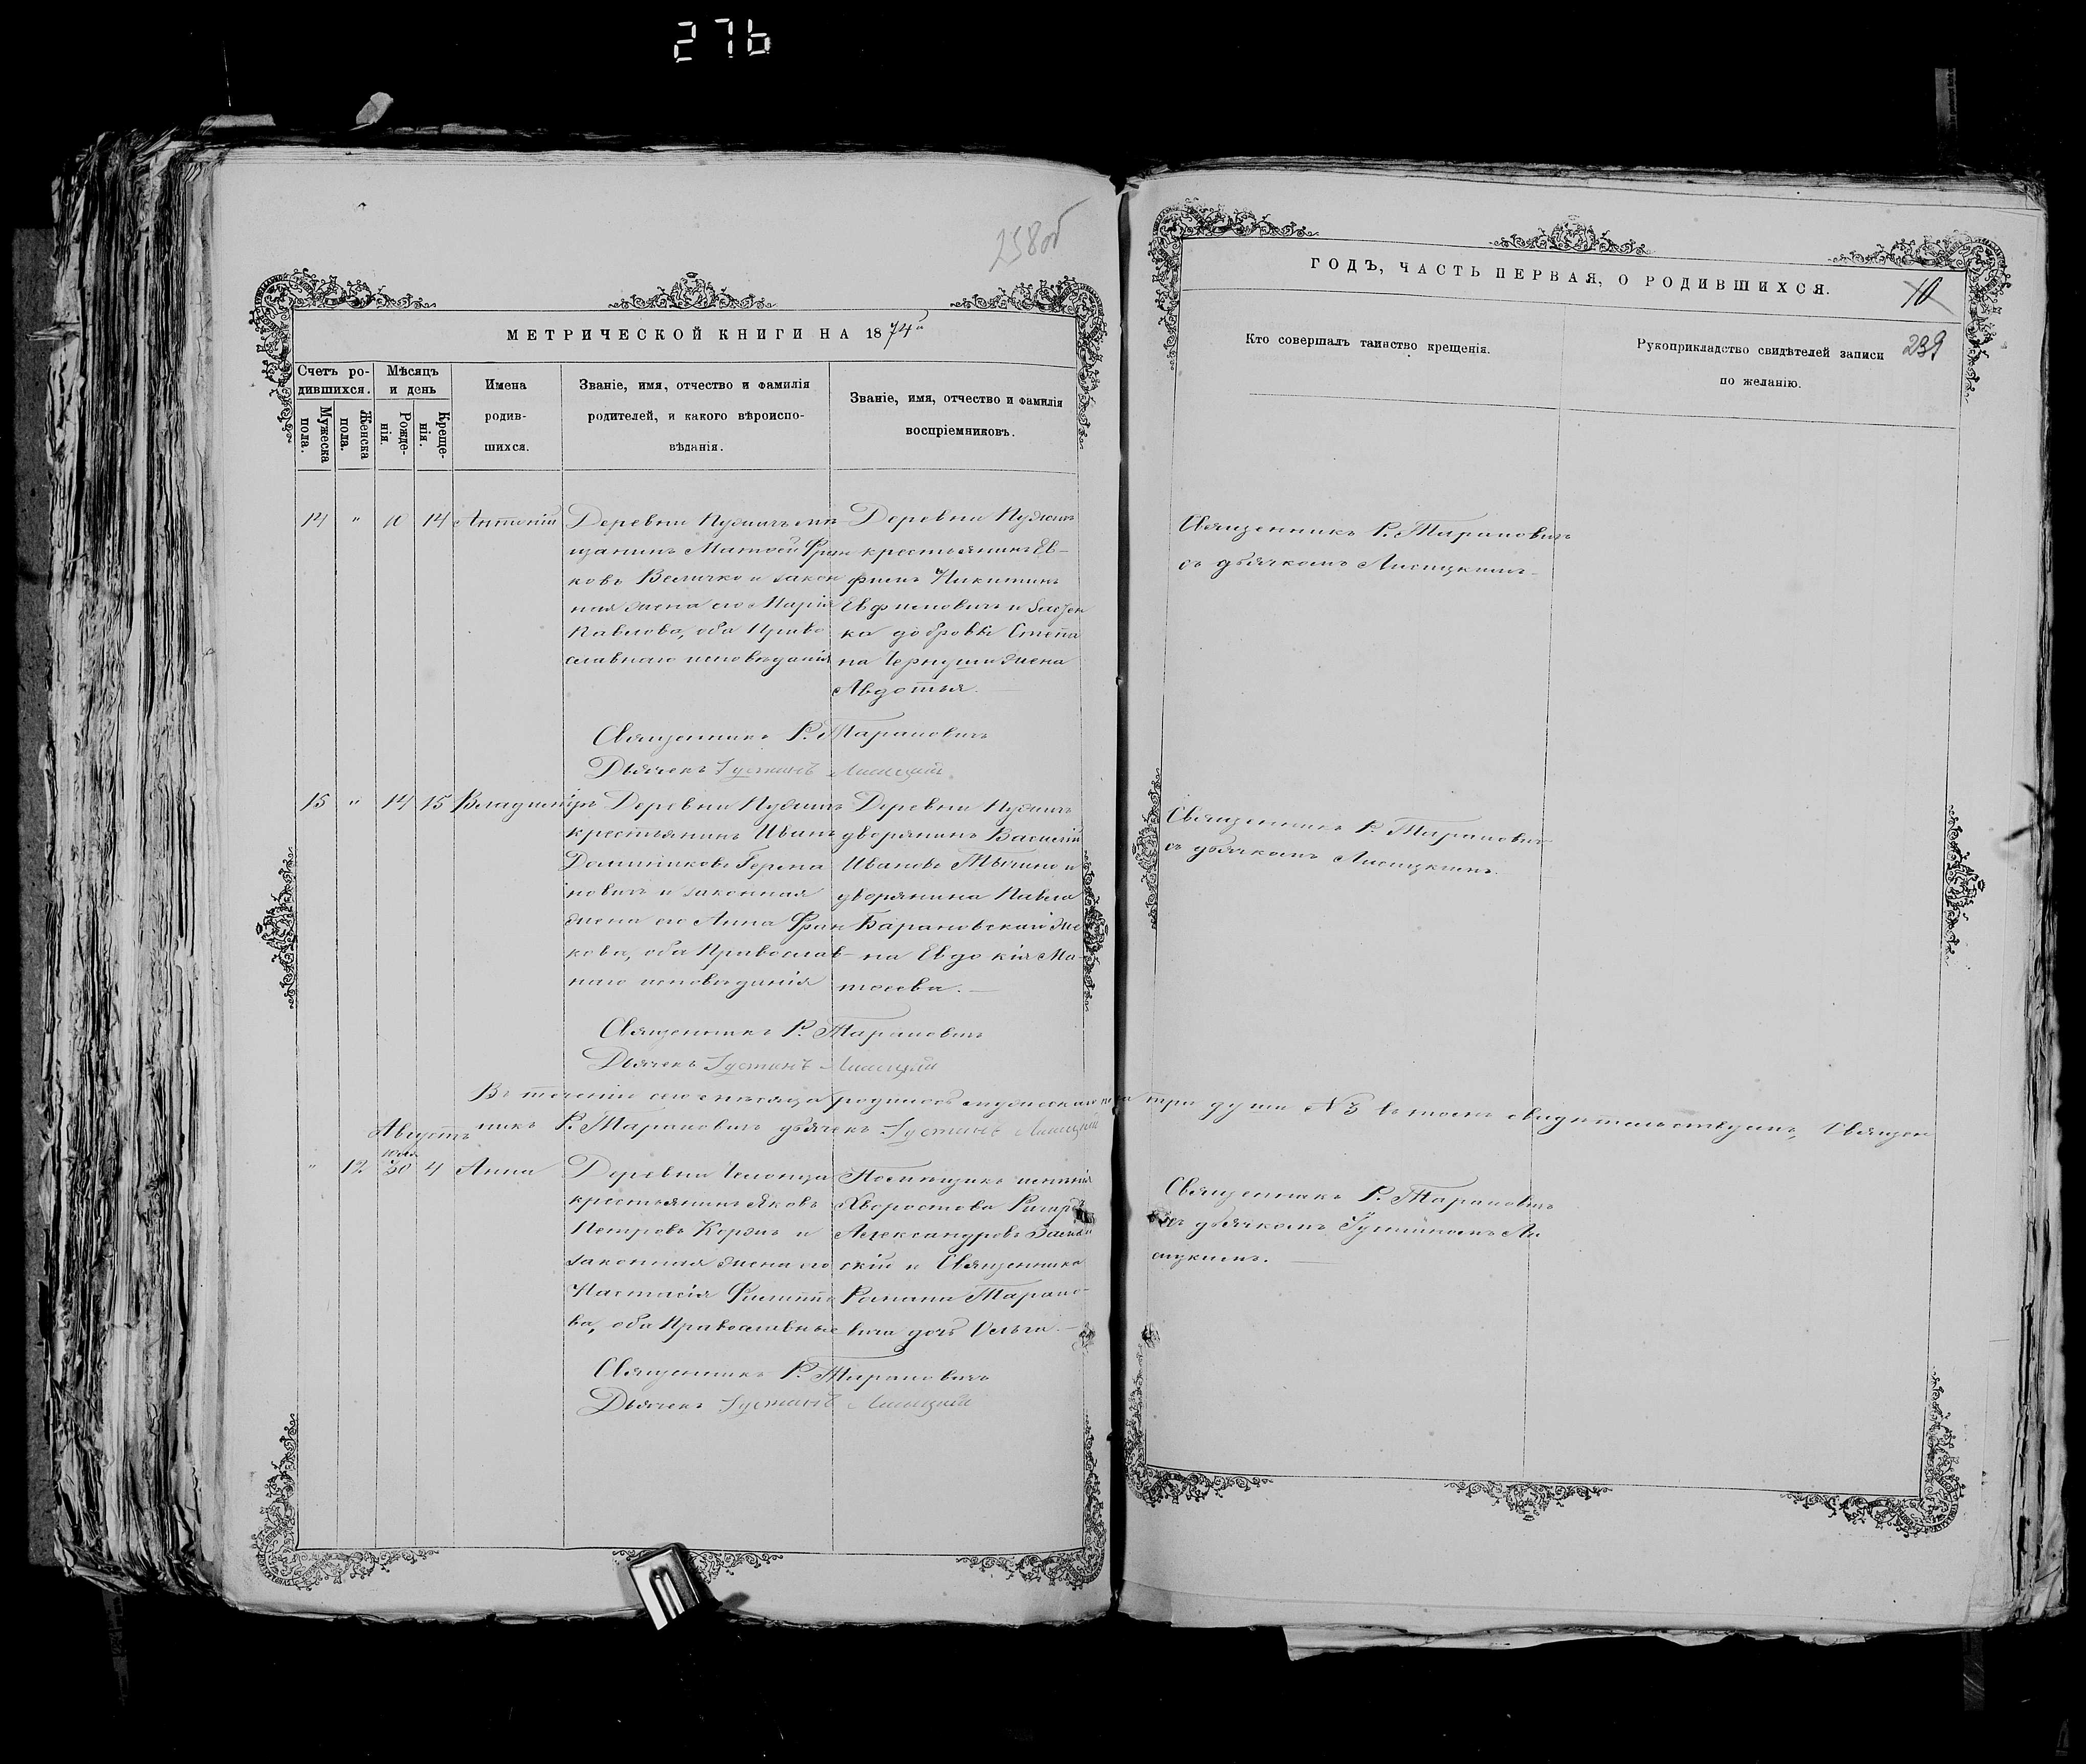 276
238об
МЕТРИЧЕСКОЙ КНИГИ НА 1874й
Счетъ ро-
дившихся.
Мужеска
пола.
Женска
пола.
Мѣсяцъ
и день
Рожде-
нія.
Креще-
нія.
Имена
родив-
шихся.
Званіе, имя, отчество и фамилія
родителей, и какого вѣроиспо-
вѣданія.
Званіе, имя, отчество и фамилія
воспріемниковъ.
14 " 10 14 Антоній
Деревни мѣ-
щанинъ Матвей Фран
ковъ Величко и закон
ная жена его Марія
Павлова, оба Право
славнаго исповѣданія
Деревни
крестьянинъ Ев-
фимъ Никитинъ
Евфимовичъ и
Степа
на жена
Авдотья.
Священникъ Р. Тарановичъ
Дьячекъ Іустинъ Лисицкій
15 " 14 15 Владиміръ
Деревни
крестьянинъ Иванъ
Доминиковъ Герма
новичъ и законная
жена его Анна Фран
кова, оба Православ-
наго исповѣданія
Деревни
дворянинъ Василій
Ивановъ и
дворянина Павла
Барановскаго же
на Евдокія Ма-
тѳеева.
Священникъ Р. Тарановичъ
Дьячекъ Іустинъ Лисицкій
Въ теченіи сего мѣсяца родилось мужескаго пола три души №3 въ томъ свидѣтельствуемъ, Священ
никъ Р. Тарановичъ дьячекъ Іустинъ Лисицкій
Августъ
" 12 Іюля 30 4 Анна
Деревни
крестьянинъ Яковъ
Петровъ и
законная жена его
Настасія Филиппо
ва, оба Православные
имѣнія
Хворостова
Александровъ
скій и Священника
Романа Тарано-
вича дочь Ольга.
Священникъ Р. Тарановичъ
Дьячекъ Іустинъ Лисицкій
ГОДЪ, ЧАСТЬ ПЕРВАЯ, О РОДИВШИХСЯ.
10
239
Кто совершалъ таинство крещенія.
Рукоприкладство свидѣтелей записи
по желанію.
Священникъ Р. Тарановичъ
съ дьячкомъ Лисицкимъ.
Священникъ Р. Тарановичъ
съ дьячкомъ Лисицкимъ.
Священникъ Р. Тарановичъ
съ дьячкомъ Іустиномъ Ли
сицкимъ.